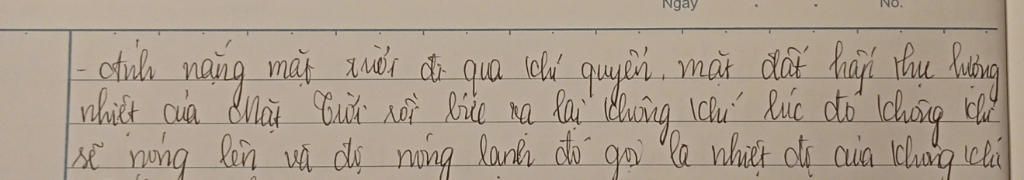 Ngày No.
- Ánh nắng mặt trời đi qua khí quyển, mặt đất hấp thụ lượng
nhiệt của Mặt Trời rồi bức xạ lại không khí lúc đó không khí
sẽ nóng lên và độ nóng lạnh đó gọi là nhiệt độ của không khí